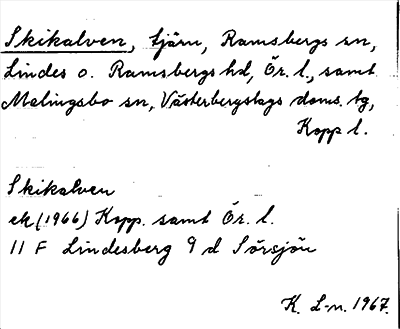 Skikalven, tjärn, Ramsbergs sn,
Lindes o. Ramsbergs hd, Ör. l., samt
Malingsbo sn, Västerbergslags doms. tg,
Kopp l.
Skikalven
ek (1966) Kopp. samt Ör. l.
11 F Lindesberg 9 d Sörsjön
K. L-n. 1967.